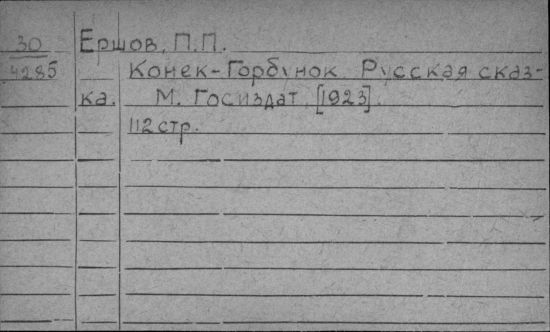 30 Ершов, П.П.
4285 Конек-Горбунок. Русская сказ-
ка. М. Госиздат, [1923].
112 стр.